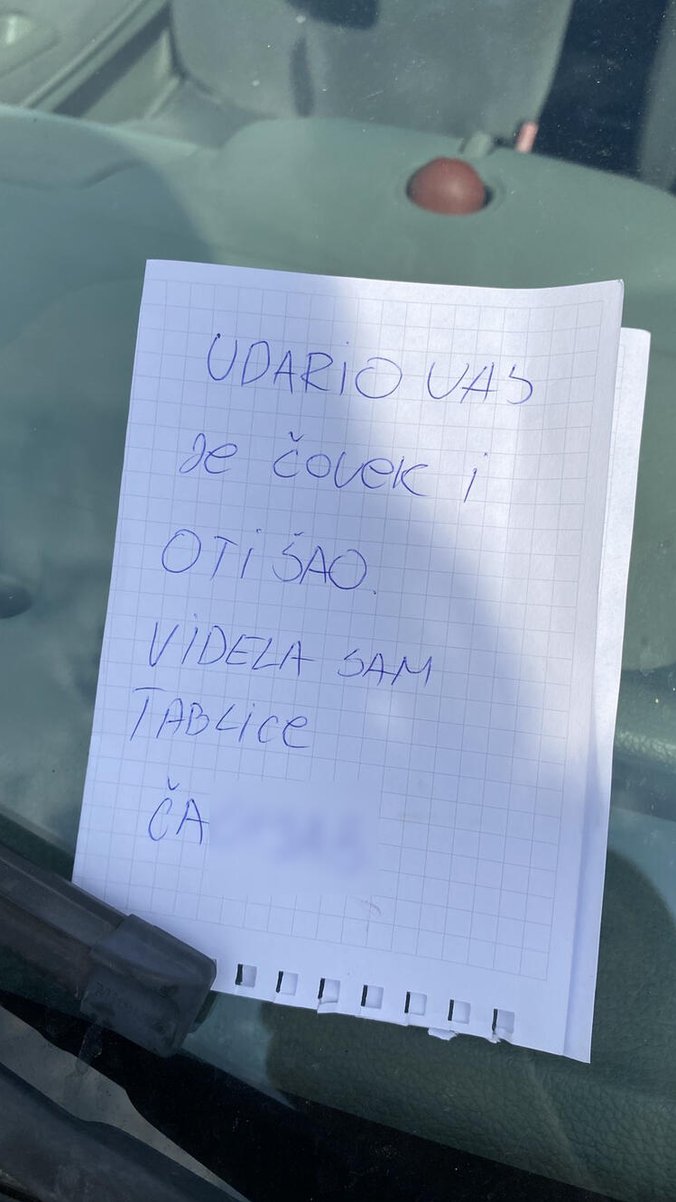 UDARIO VAS
JE ČOVEK I
OTIŠAO.
VIDELA SAM
TABLICE
ČA